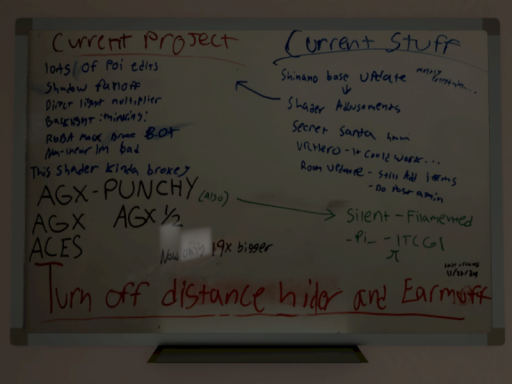 Current Project
lots of Poi edits
Shadow falloff
Direct light multiplier
Backlight :thinking:
This Shader kinda broke?
AGX - PUNCHY (Also)
AGX AGX 1/2
ACES
Now only 19x bigger
Current Stuff
Shinano base update
Shader Adjusments
Secret Santa hmm
VRHero - It could work...
Room Update - Still Add items
- Do Post again
Silent - Filamented
- Pi_ - LTCGI
Turn off distance hider and Earmuff